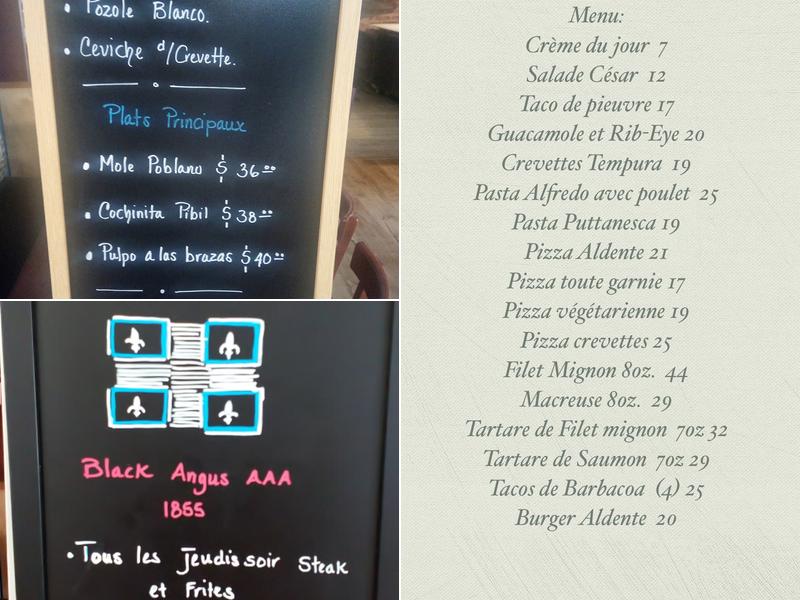 • Pozole Blanco.
• Ceviche d/Crevette.
Plats Principaux
• Mole Poblano $ 36.00
• Cochinita Pibil $ 38.00
• Pulpo a las brazas $ 40.00
Black Angus AAA
1855
• Tous les Jeudis soir Steak
et Frites
Menu:
Crème du jour 7
Salade César 12
Taco de pieuvre 17
Guacamole et Rib-Eye 20
Crevettes Tempura 19
Pasta Alfredo avec poulet 25
Pasta Puttanesca 19
Pizza Aldente 21
Pizza toute garnie 17
Pizza végétarienne 19
Pizza crevettes 25
Filet Mignon 8oz. 44
Macreuse 8oz. 29
Tartare de Filet mignon 7oz 32
Tartare de Saumon 7oz 29
Tacos de Barbacoa (4) 25
Burger Aldente 20